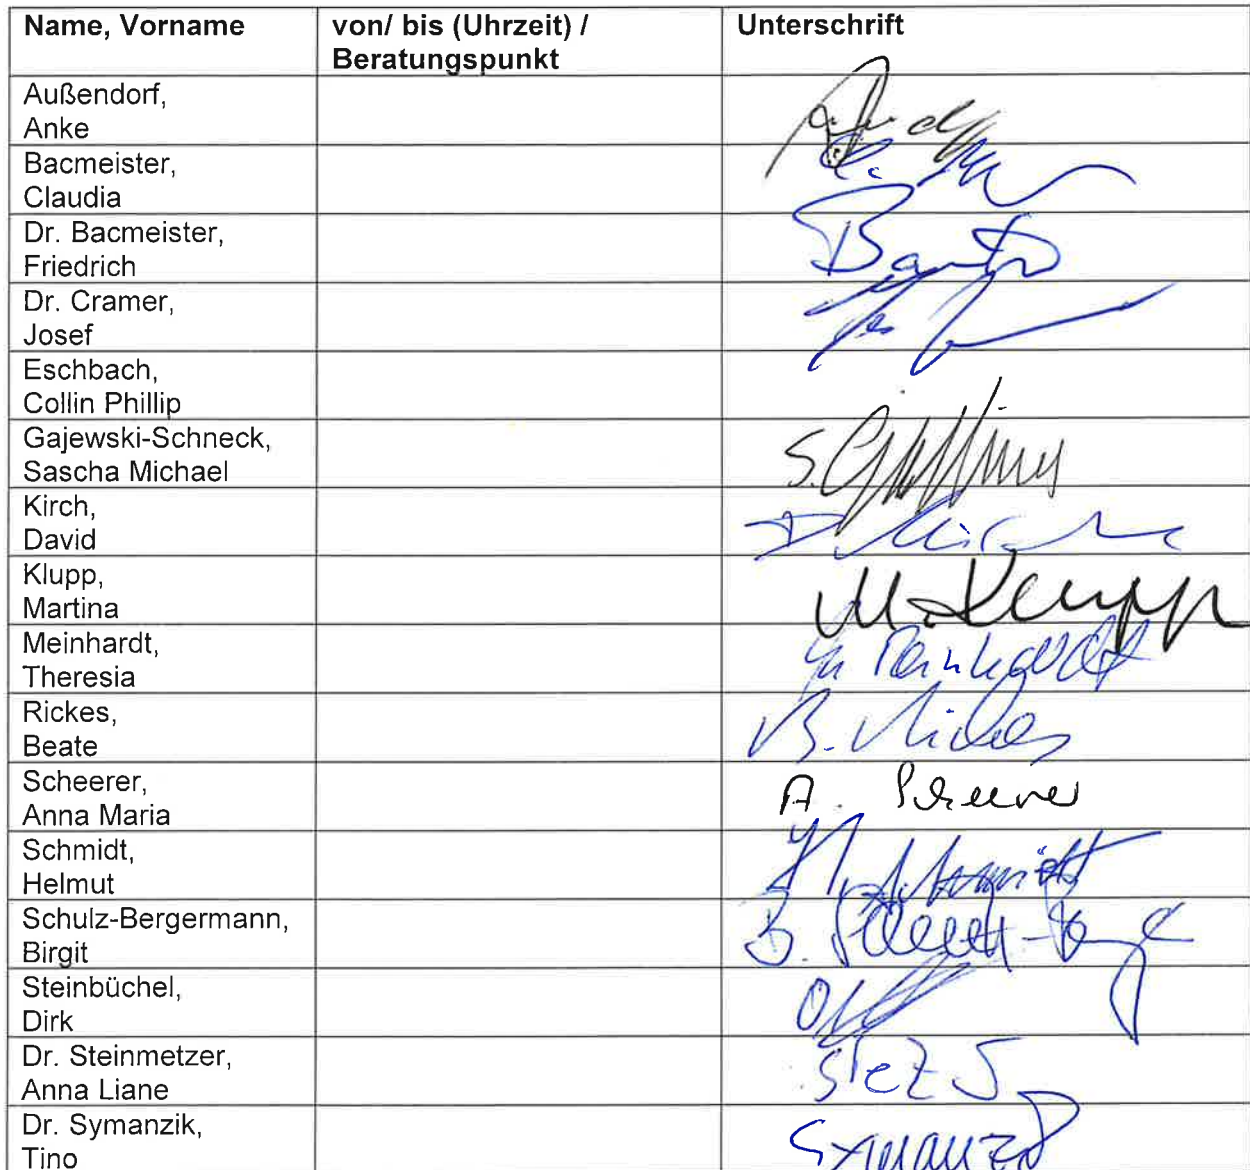 Name, Vorname
von/ bis (Uhrzeit) /
Beratungspunkt
Unterschrift
Außendorf,
Anke
Bacmeister,
Claudia
Dr. Bacmeister,
Friedrich
Dr. Cramer,
Josef
Eschbach,
Collin Phillip
Gajewski-Schneck,
Sascha Michael
S.
Kirch,
David
D. Kirch
Klupp,
Martina
M. Klupp
Meinhardt,
Theresia
Meinhardt
Rickes,
Beate
B. Rickes
Scheerer,
Anna Maria
A. Scheerer
Schmidt,
Helmut
H. Schmidt
Schulz-Bergermann,
Birgit
B. Schulz-
Steinbüchel,
Dirk
Dr. Steinmetzer,
Anna Liane
Dr. Symanzik,
Tino